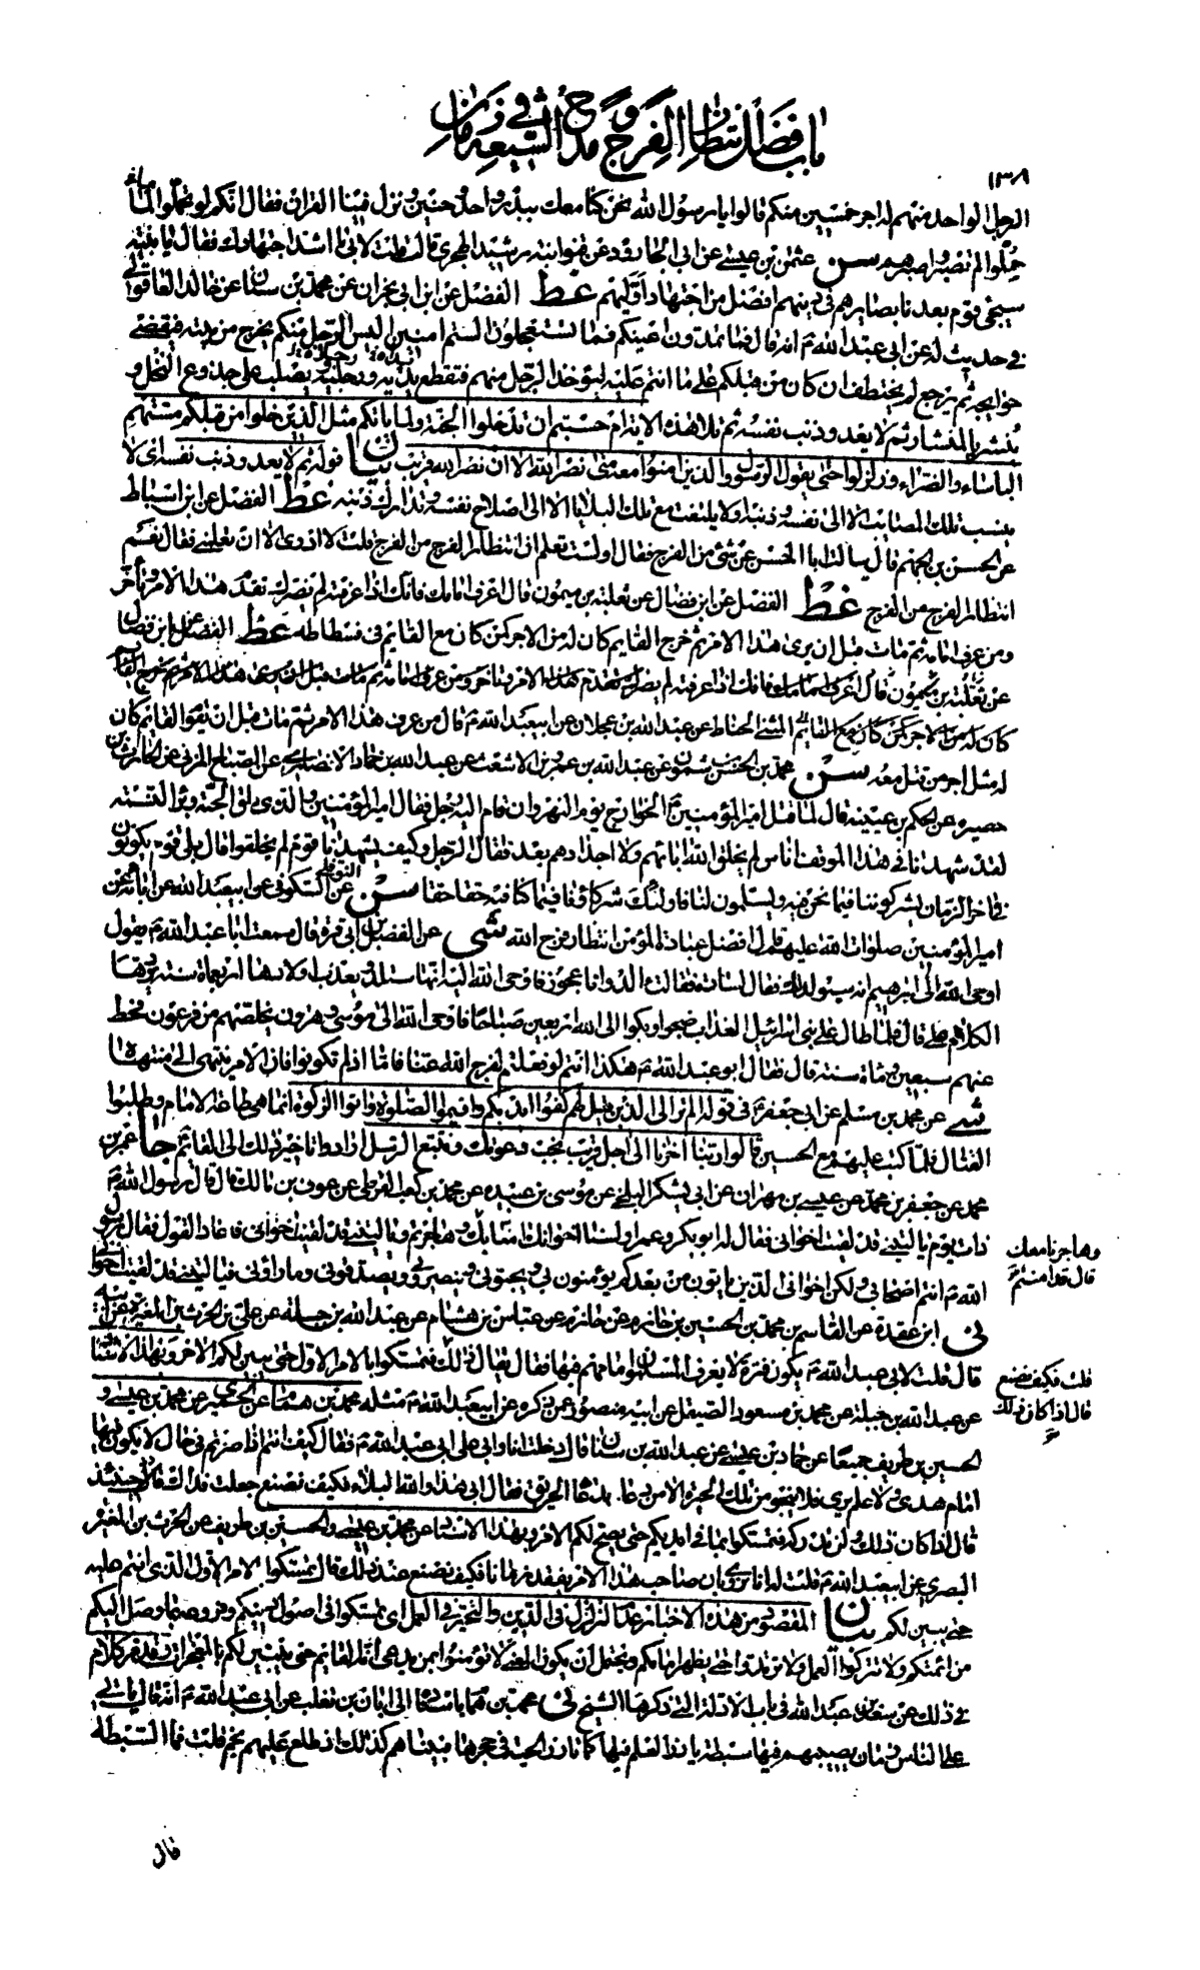 باب فضل انتظار الفرج و مدح الشيعة في زمان
١٣٨
الرجل الواحد منهم له اجر خمسين منكم قالوا يا رسول الله نحن كنا معك ببدر واحد وحنين ونزل فينا القران فقال انكم لو تحملوا لما
حملوا لم تصبروا صبرهم سن عثمن بن عيسى عن ابي الجارود عن قنوا ابنة رشيد الهجري قالت قلت لابي ما اشد اجتهادك فقال يا بنية
سيجئ قوم بعدنا بصايرهم في دينهم افضل من اجتهاد اوليهم غط الفضل عن ابن ابي نجران عن محمد بن سنان عن خالد العاقولي
في حديث له عن ابي عبد الله ع انه قال فما تمدون اعينكم فما تستعجلون الستم امنين اليس الرجل منكم يخرج من بيته فيقضي
حوايجه ثم يرجع لم يختطف ان كان من قبلكم على ما انتم عليه ليؤخذ الرجل منهم فتقطع يديه ورجليه ويصلب على جذوع النخل و
ينشر بالمنشار ثم لا يعدو ذنب نفسه ثم تلا هذه الاية ام حسبتم ان تدخلوا الجنة ولما ياتكم مثل الذين خلوا من قبلكم مستهم
الباساء والضراء وزلزلوا حتى يقول الرسول والذين امنوا معه متى نصر الله الا ان نصر الله قريب بيان قوله ثم لا يعدو ذنب نفسه اى لا
ينسب تلك المصايب الا الى نفسه وذنبه او لا يلتفت مع تلك البلايا الا الى اصلاح نفسه وتدارك ذنبه غط الفضل عن ابن اسباط
عن الحسن بن الجهم قال سالت ابا الحسن عن شئ من الفرج فقال اولست تعلم ان انتظار الفرج من الفرج قلت لا ادري الا ان تعلمني فقال نعم
انتظار الفرج من الفرج غط الفضل عن ابن فضال عن ثعلبة بن ميمون قال اعرف امامك فانك اذا عرفته لم يضرك تقدم هذا الامر او تاخر
ومن عرف امامه ثم مات قبل ان يرى هذا الامر ثم خرج القايم كان له من الاجر كمن كان مع القايم في فسطاطه غط الفضل عن ابن فضال
عن ثعلبة بن ميمون قال اعرف امامك فانك اذا عرفته لم يضرك تقدم هذا الامر او تاخر ومن عرف امامه ثم مات قبل ان يرى هذا الامر ثم خرج القايم
كان له من الاجر كمن كان مع القايم المثنى الحناط عن عبد الله بن عجلان عن ابيعبد الله ع قال من عرف هذا الامر ثم مات قبل ان يقوم القايم كان
له مثل اجر من قتل معه سن محمد بن الحسن بن شمون عن عبد الله بن عمرو بن الاشعث عن عبد الله بن حماد الانصاري عن الصباح المزني عن الحارث بن
حصيره عن الحكم بن عيينه قال لما قتل امير المؤمنين ع الخوارج يوم النهروان قام اليه رجل فقال امير المؤمنين والذي فلق الحبة وبرا النسمة
لقد شهدنا في هذا الموقف اناس لم يخلق الله اباءهم ولا اجدادهم بعد فقال الرجل وكيف يشهدنا قوم لم يخلقوا قال بلى قوم يكونون
في اخر الزمان يشركوننا فيما نحن فيه ويسلمون لنا فاولئك شركاؤنا فيما كنا فيه حقا حقا سن النوفلي عن السكوني عن ابيعبد الله عن ابائه عن
امير المؤمنين صلوات الله عليهم قال افضل عبادة المؤمن انتظار فرج الله شى عن الفضل بن ابي قرة قال سمعت ابا عبد الله ع يقول
اوحى الله الى ابرهيم انه سيولد لك فقال لسارة فقالت ءالد وانا عجوز فاوحى الله اليه انها ستلد ويعذب اولادها اربعماة سنة بردها
الكلام على قال فلما طال على بني اسرائيل العذاب ضجوا وبكوا الى الله اربعين صباحا فاوحى الله الى موسى وهرون يخلصهم من فرعون فحط
عنهم سبعين وماة سنة قال فقال ابو عبد الله ع هكذا انتم لو فعلتم لفرج الله عنا فاما اذا لم تكونوا فان الامر ينتهى الى منتهاه
شى عن محمد بن مسلم عن ابي جعفر ع في قوله الم تر الى الذين قيل لهم كفوا ايديكم واقيموا الصلوة واتوا الزكوة انما هي طاعة الامام وطلبوا
القتال فلما كتب عليهم مع الحسين قالوا ربنا اخرنا الى اجل قريب نجب دعوتك ونتبع الرسل ارادوا تاخير ذلك الى القايم جا عمر بن
محمد عن جعفر بن محمد عن عيسى بن مهران عن ابي يشكر البلخي عن موسى بن عبيده عن محمد بن كعب القرظي عن عوف بن مالك قال قال رسول الله ص
ذات يوم يا ليتني قد لقيت اخواني فقال له ابو بكر وعمر اولسنا اخوانك امنا بك وهاجرنا معك
وهاجرنا معك
قال قد امنتم
الله ص انتم اصحابي ولكن اخواني الذين ياتون من بعدكم يؤمنون بي ويحبوني وينصروني ويصدقوني وما راوني فيا ليتني قد لقيت اخواني
نى ابن عقدة عن القاسم بن محمد بن الحسين بن حازم عن عباس بن هشام عن عبد الله بن جبله عن علي بن الحرث بن المغيرة عن ابيه
قال قلت لابي عبد الله ع يكون فترة لا يعرف المسلمون امامهم فيها فقال يقال ذلك
قلت فكيف نصنع
قال اذا كان ذلك
فتمسكوا بالامر الاول حتى يبين لكم الاخر وبهذا الاسناد
عن عبد الله بن جبلة عن محمد بن مسعود الصيقل عن ابيه منصور عمن ذكره عن ابيعبد الله ع مثله محمد بن همام عن الحميري عن محمد بن عيسى و
الحسين بن طريف جميعا عن حماد بن عيسى عن عبد الله بن سنان قال دخلت انا وابي على ابي عبد الله ع فقال كيف انتم اذا صرتم في حال لا يكون فيها
امام هدى ولا علم يرى فلا ينجو من تلك الحيرة الا من دعا بدعاء الحريق فقال ابي هذا والله البلاء فكيف نصنع جعلت فداك حينئذ
قال اذا كان ذلك ولن تدركه فتمسكوا بما في ايديكم حتى يصح لكم الامر وبهذا الاسناد عن محمد بن عيسى والحسين بن طريف عن الحرث بن المغيرة
البصري عن ابيعبد الله ع قلت له انا نروى بان صاحب هذا الامر يفقد زمانا فكيف نصنع عند ذلك قال تمسكوا بالامر الاول الذي انتم عليه
حتى يبين لكم بيان المقصود من هذه الاخبار عدم التزلزل في الدين والتحير في العمل اى تمسكوا في اصول دينكم وفروعه بما وصل اليكم
من ائمتكم ولا تتركوا العمل ولا ترتدوا حتى يظهر امامكم ويحتمل ان يكون المعنى لا تؤمنوا بمن يدعي انه القايم حتى يتبين لكم بالمعجزات وقد مر كلام
في ذلك عن سعد بن عبد الله في باب الادلة التي ذكرها الشيخ نى محمد بن همام باسناده الى ابان بن تغلب عن ابي عبد الله ع انه قال ياتي
على الناس زمان يصيبهم فيها سبطة يارز العلم فيها كما تارز الحية في جحرها فبينا هم كذلك اذ طلع عليهم نجم قلت فما السبطة
قال